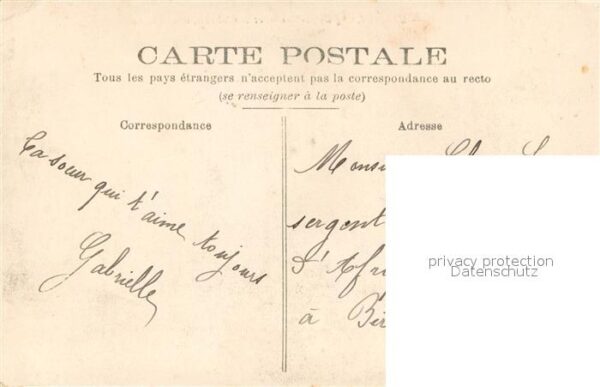 CARTE POSTALE
Tous les pays étrangers n'acceptent pas la correspondance au recto
(se renseigner à la poste)
Correspondance
Ta soeur qui t'aime toujours
Gabrielle
Adresse
sergent
d'Afri
à
privacy protection
Datenschutz